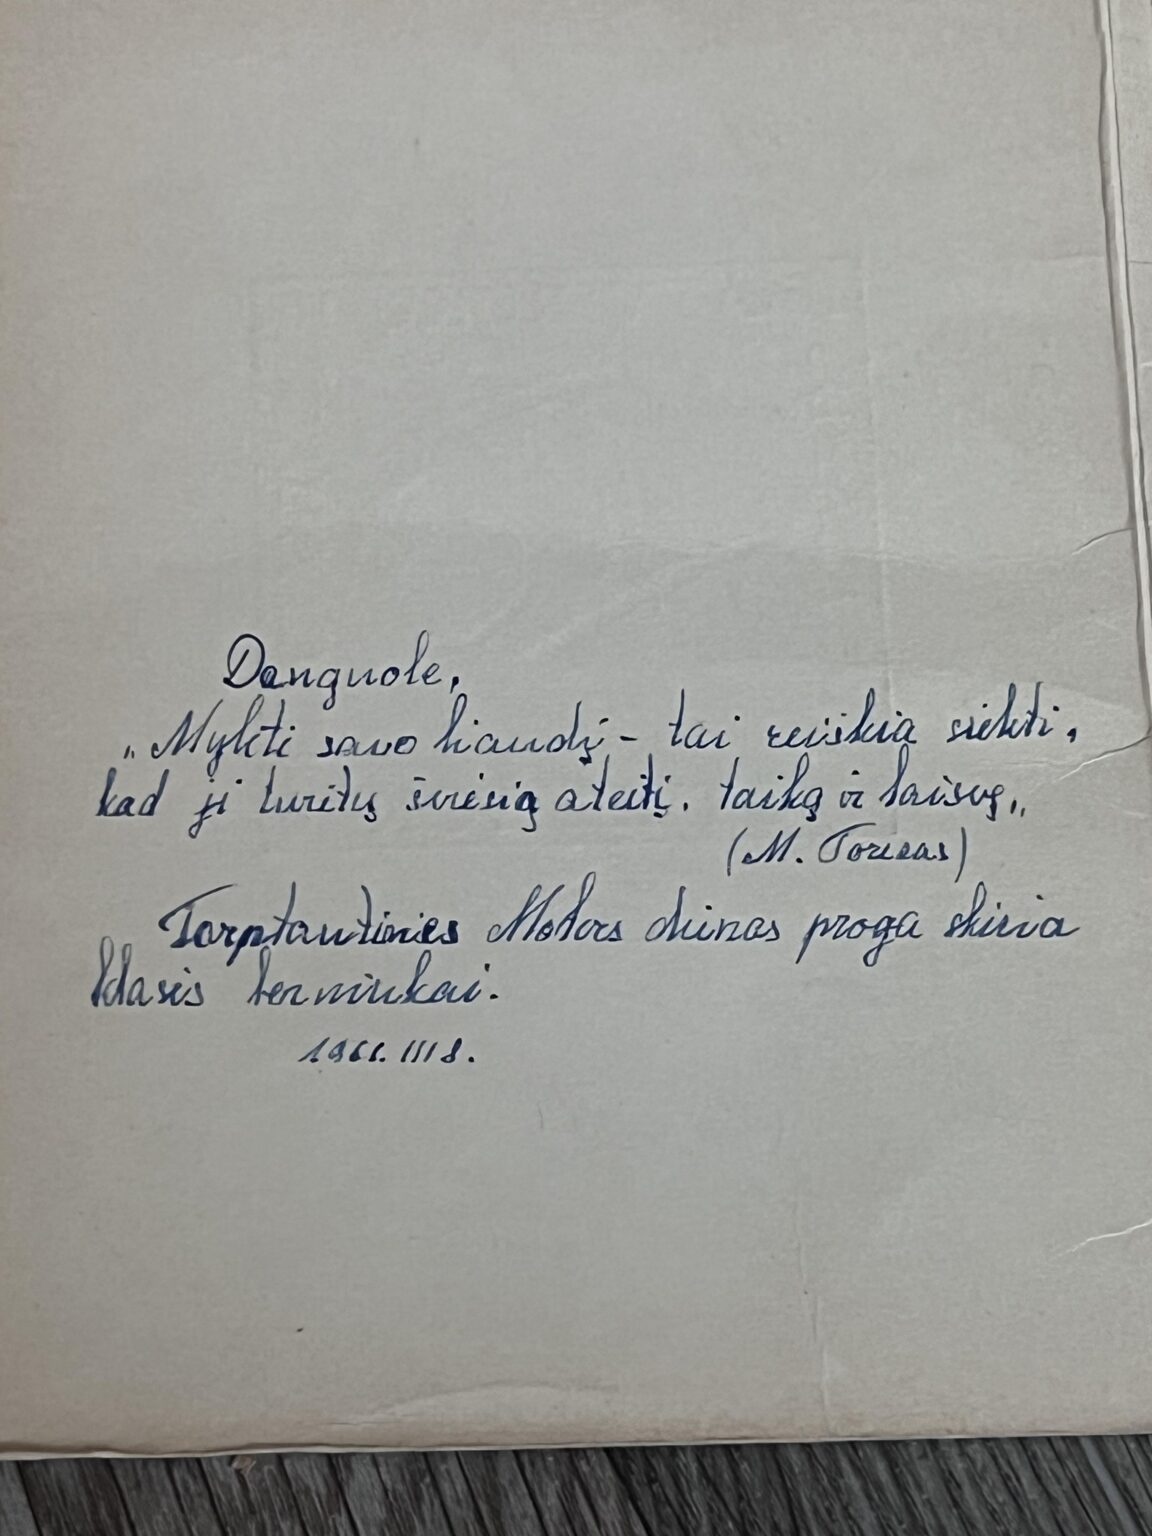 Danguole,
„Mylėti savo liaudį – tai reiškia siekti,
kad ji turėtų šviesią ateitį, taiką ir laisvę„
(M. Torezas)
Tarptautinės Moters dienos proga skiria
klasės berniukai.
1966. III 8.